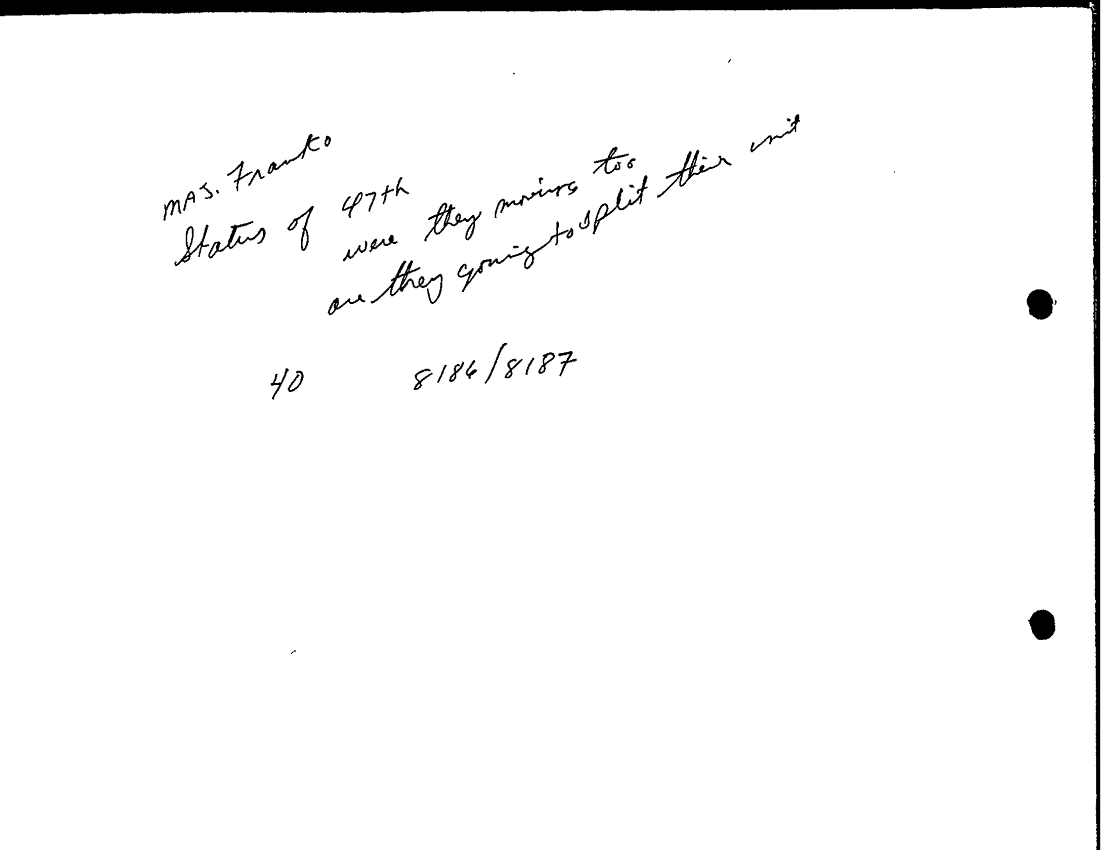 MAJ. Franko
Status of 47th
were they moving too
are they going to split their unit
40 8186/8187